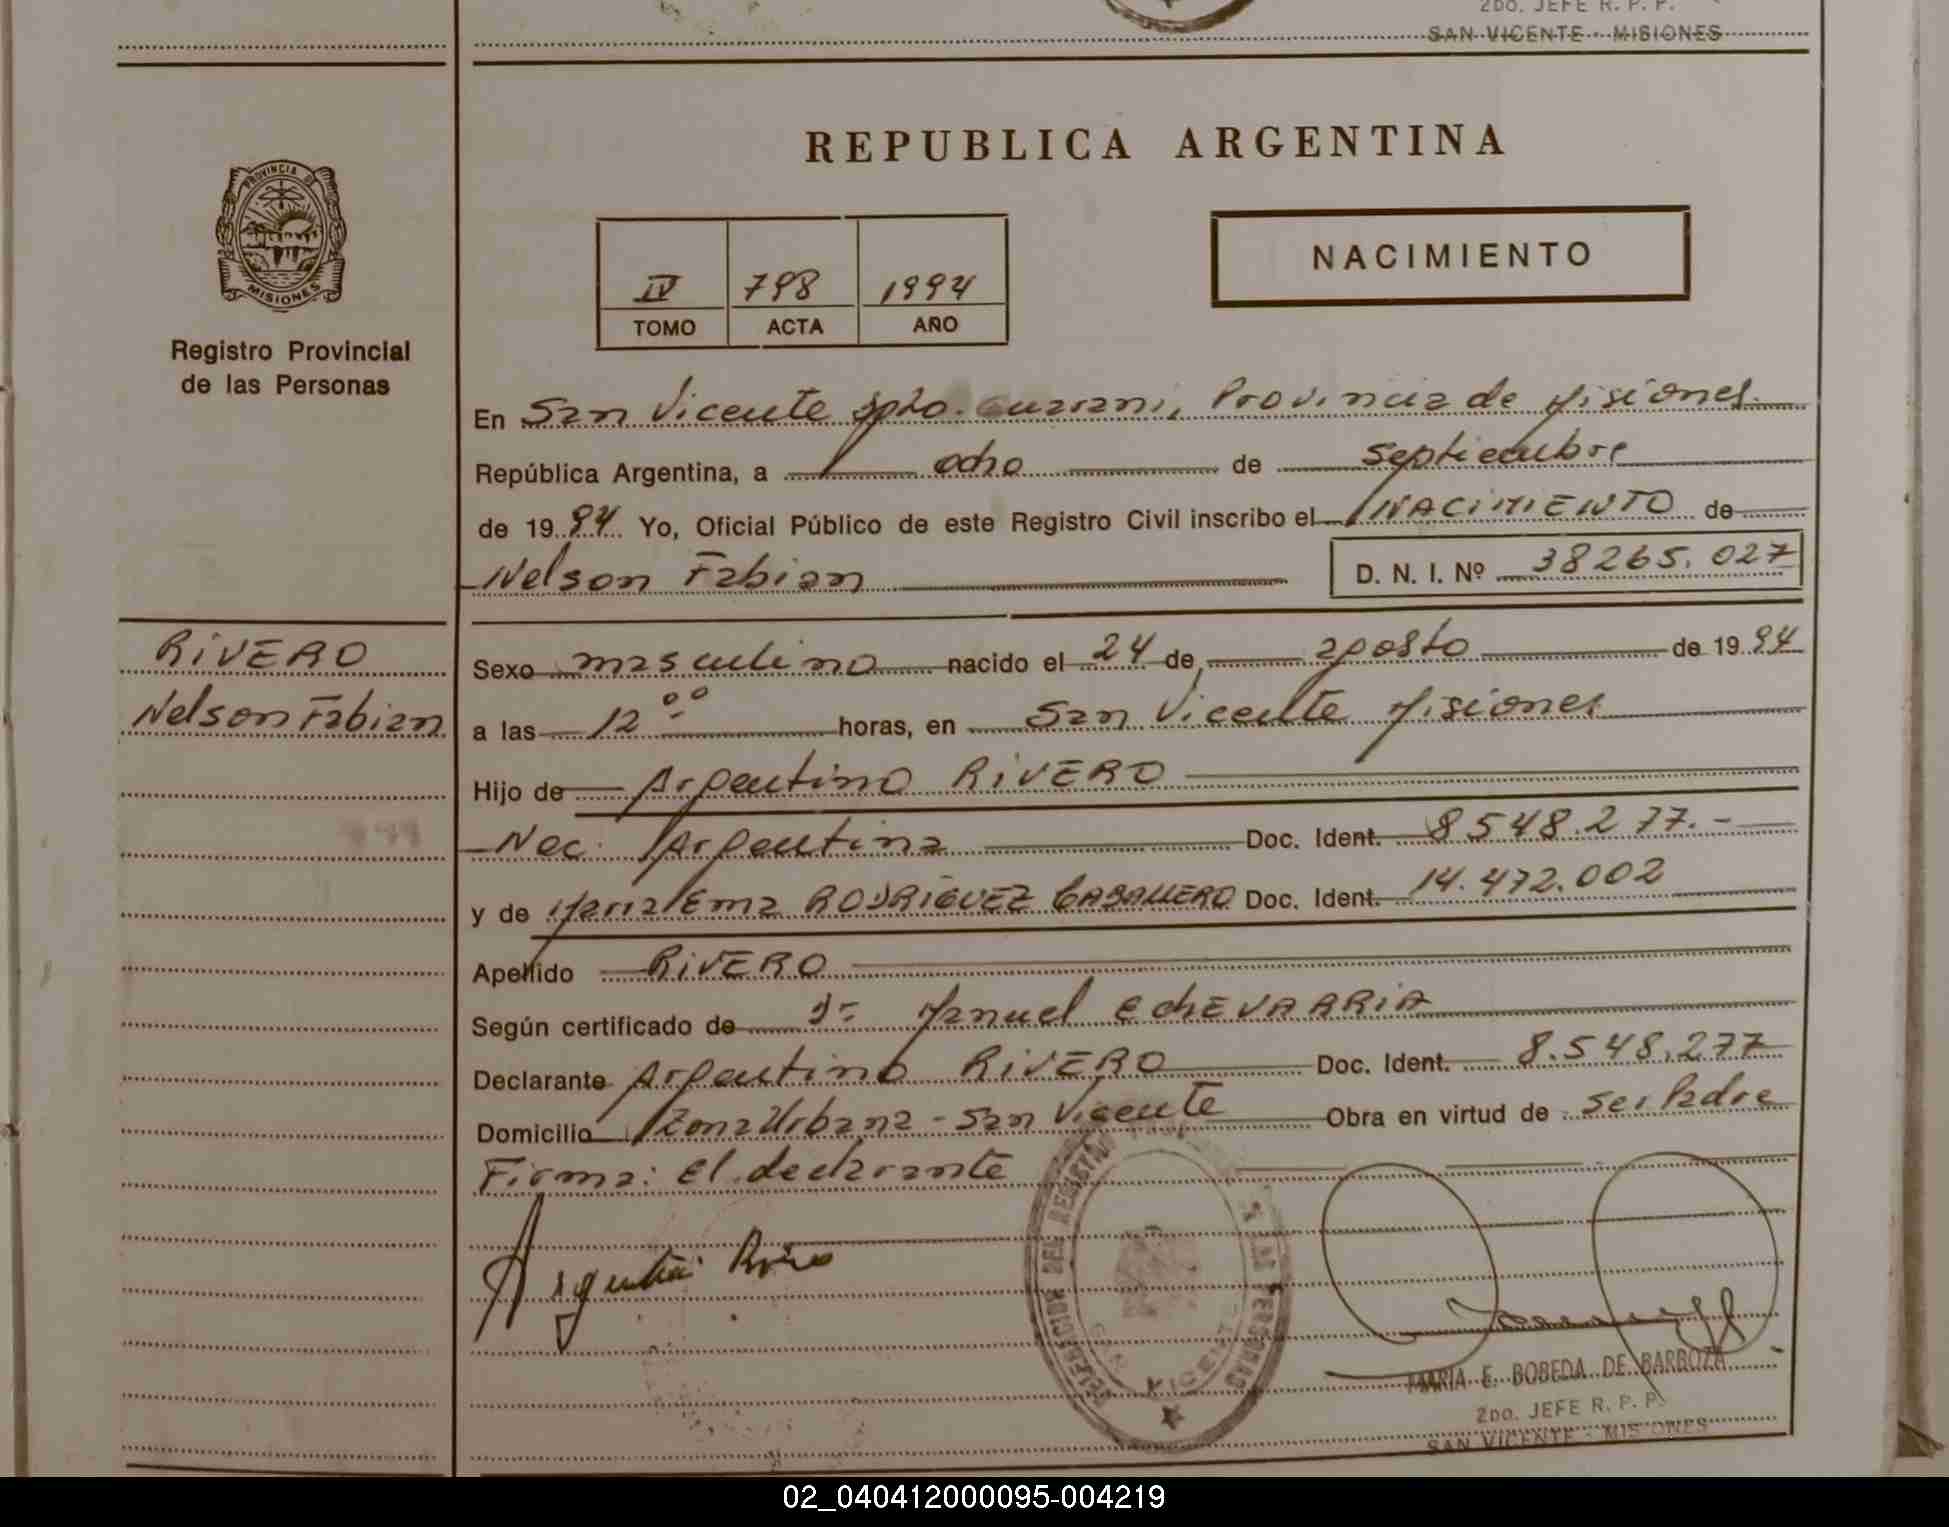 2DO. JEFE R. P. P.
SAN VICENTE - MISIONES
REPUBLICA ARGENTINA
PROVINCIA DE
MISIONES
NACIMIENTO
IV 798 1994
TOMO ACTA AÑO
Registro Provincial
de las Personas
En San Vicente Dpto. Guarani, Provincia de Misiones.
República Argentina, a ocho de septiembre
de 1994 Yo, Oficial Público de este Registro Civil inscribo el NACIMIENTO de
Nelson Fabian D. N. I. Nº 38265.027
RIVERO
Nelson Fabian
Sexo masculino nacido el 24 de agosto de 1994
a las 12 oo horas, en San Vicente Misiones
Hijo de Argentino RIVERO
Nac. Argentina Doc. Ident. 8548.277.-
y de Maria Ema RODRIGUEZ CABALLERO Doc. Ident. 14.472.002
Apellido RIVERO
Según certificado de Dr Manuel EchEVARRIA
Declarante Argentino RIVERO Doc. Ident. 8.548.277
Domicilio Zona Urbana - San Vicente Obra en virtud de ser Padre
Firma: el declarante
Argentino Rivero
DELEGACION DEL REGISTRO DE LAS PERSONAS
SAN VICENTE
MARIA E. BOBEDA DE BARBOZA
2DO. JEFE R. P. P.
SAN VICENTE - MISIONES
02_040412000095-004219